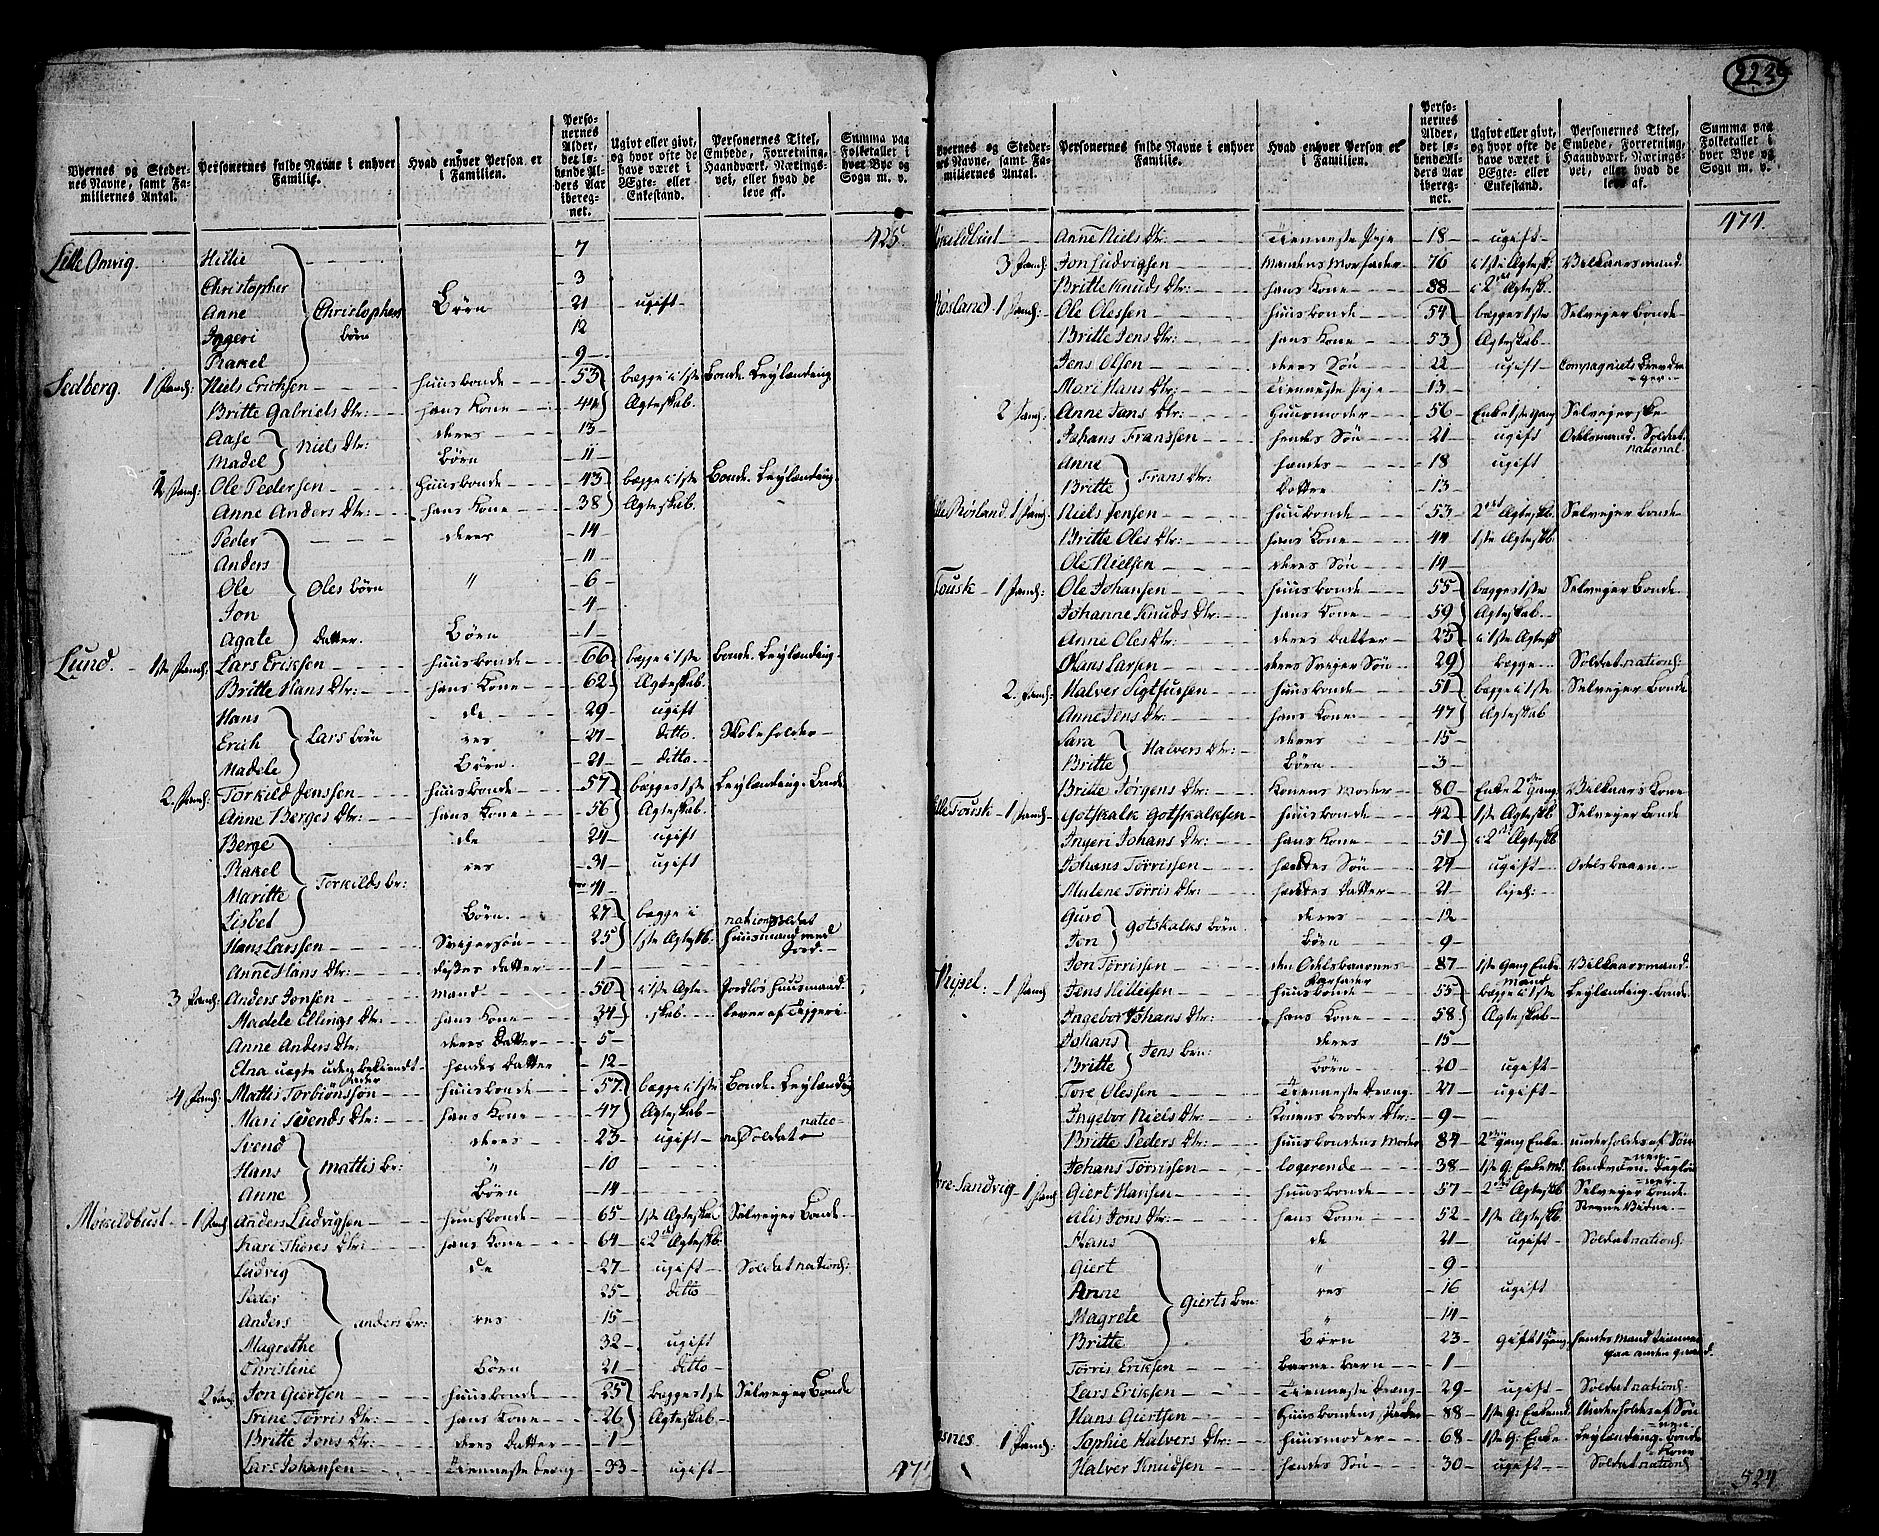 223
Byernes og Steder-
nes Navne, samt Fa-
miliernes Antal.
Personernes fulde Navne i enhver
Familie.
Hvad enhver Person er
i Familien.
Perso-
nernes
Alder,
det lø-
bende Al-
ders Aar
ibereg-
net.
Ugivt eller givt,
og hvor ofte de
have været i
Ægte- eller
Enkestand.
Personernes Titel,
Embede, Forretning,
Haandværk, Nærings-
vei, eller hvad de
leve af.
Summa paa
Folketallet i
hver Bye og
Sogn m. v.
425
Lille Omvig. Hillie 7
Christopher 3
Anne Christophers Børn 21 ugift
Ingeri børn 12
Rakel 9
Sedberg. 1 Famh: Niels Erichsen huusbonde 53 begge i 1ste Bonde. Leylænding
Britte Gabriels Dtr: hans Kone 44 Ægteskab.
Aase Niels Dtr: deres 13
Madel Børn 11
2 Famh: Ole Pedersen huusbonde 43 begge i 1ste Bonde. Leylænding.
Anne Anders Dtr: hans Kone 38 Ægteskab.
Peder deres 14
Anders 11
Ole Oles børn " 6
Jon 4
Agate Datter. Børn 1
Lund. 1ste Famh: Lars Eriksen huusbonde 66 begge i 1ste bonde. Leylænding
Britte Hans Dtr: hans Kone 62 Ægteskab.
Hans de 29 ugift
Erich Lars børn res 27 ditto Skoleholder
Madele Børn. 21 ditto
2. Famh: Torkild Jenssen huusbonde 57 begge 1ste Leylænding. Bonde
Anne Berges Dtr: hans Kone 56 Ægteskab.
Berge de 24 ugift
Rakel res 31 ugift
Maritte Torkilds br: 11
Lisbet Børn. 27 begge i national
Hans Larssen Svigersøn 25 1ste Ægteskb. huusmand med Jord.
Anne Hans Dtr: disses datter 1
3 Famh: Anders Jonsen mand 50 i 1ste Ægte- Jordløs huusmand
Madele Ellings Dtr: hans Kone 34 skab. lever af Tiggeri
Anne Anders Dtr: deres Datter 5
Elna uægte uden bekiendt Fader hendes Datter 12
4 Famh: Mattis Torbiönssön huusbonde 57 begge i 1ste Bonde. Leylænding
Mari Svends Dtr: hans Kone 47 Ægteskab
Svend deres 23 ugift Soldat natio-
Hans mattis Br: " 10
Anne Børn 14
Morkildbust 1 Famh Anders Ludvigsen huusbonde 65 1ste Ægteskab Selveyer Bonde
Kari Thores Dtr: hans Kone 64 i 2det Ægteskb.
Ludvig de 27 ugift Soldat national:
Peder 25 ditto
Anders anders br: res 15
Magrethe 32 ugift
Christine Børn 21 ditto
2 Famh Jon Giertsen huusbonde 25 begge 1ste Selveyer Bonde
Trine Torris Dtr: hans Kone 26 Ægteskab
Britte Jons Dtr: deres datter 1
Lars Johansen Tienneste dreng 33 ugift
47
Byernes og Steder-
nes Navne, samt Fa-
miliernes Antal.
Personernes fulde Navne i enhver
Familie.
Hvad enhver Person er
i Familien.
Perso-
nernes
Alder,
det lø-
bende Al-
ders Aar
ibereg-
net.
Ugivt eller givt,
og hvor ofte de
have været i
Ægte- eller
Enkestand.
Personernes Titel,
Embede, Forretning,
Haandværk, Nærings-
vei, eller hvad de
leve af.
Summa paa
Folketallet i
hver Bye og
Sogn m. v.
474.
kildbust Anne Niels Dtr: Tienneste Peje 18 ugift
3 Famh: Jon Ludvigsen Mandens Morfader 76 i 1ste Ægtesk: Vilkaarsmand
Britte Knuds Dtr: hans Kone 88 i 2det Ægtesk.
Røsland 1 Famh: Ole Olessen huusbonde 54 begge 1ste Selvejer bonde
Britte Jens Dtr: hans Kone 53 Ægteskab
Jens Olsen deres Søn 22 ugift Compagniets
Mari Hans Dtr: Tienneste Peje 13
2 Famh: Anne Jans Dtr: Huusmoder 56 Enke 1ste gang Selvejerske
Johans Franssen hendes Søn 21 ugift Odelsmand. Soldat national
Anne Frans Dtr: hendes 18 ugift
Britte Dattre 13
lle Røsland 1 Famh Niels Jensen huusbonde 53 2det Ægteskb. Selvejer bonde
Britte Oles Dtr: hans Kone 44 1ste Ægteskb
Ole Nielsen deres Søn 14
Tousk 1 Famh: Ole Johansen huusbonde 55 begge 1ste Selvejer Bonde
Johanne Knuds Dtr: hans Kone 59 Ægteskab
Anne Oles Dtr: deres datter 25 i 1ste Ægtesk
Hans Larsen deres Svejer Søn 29 begge Soldat national:
2. Famh: Halver Sigtfussen huusbonde 51 begge i 1ste Selvejer Bonde
Anne Jens Dtr: hans Kone 47 Ægteskab
Sara Halvers Dtr: deres 15
Britte Børn 3
Britte Jørgens Dtr: Konens Moder 80 Enke 2den Gang. Vilkaars Kone
lle Tousk 1 Famh: Gotskalk Gotskalksen huusbonde 42 1ste Ægteskb Selvejer Bonde
Ingeri Johans Dtr: hans Kone 51 i 2det Ægteskb
Johans Tørrissen hendes Søn 24 ugift Odelsbaaren
Malene Torris Dtr: hendes Datter 21 ligel:
Guro Gotskalks børn deres 12
Jon Børn 9
Jon Torrissen den Odelsbaarnes Farfader 87 1ste Gang Enke Mand Vilkaarsmand
1 Famh Jens Nillesen huusbonde 55 begge i 1ste Leylænding. Bonde
Ingebor Johans Dtr: hans Kone 58 Ægteskab
Johans Jens Brn: deres 15
Britte Børn 20 ugift
Tore Olessen Tienneste Dreng 21 ugift
Ingebor Niels Dtr: Konens broder Dtr: 9
Britte Peders Dtr: huusbondens Moder 84 2den gang Enke underholdes af Søn-
nen
Johans Torrissen logerende 38 1ste G: Enkemd. Landværn. dagløn-
ner
re Sandvig 1 Famh Giert Hansen huusbonde 57 2det Ægteskb Selvejer bonde.
Alis Jons Dtr: hans Kone 52 1ste Ægteskb.
Hans de 21 ugift Soldat national:
Giert " 9
Anne Gierts Brn: res 16 ugift
Magrete " 14
Britte Børn 23 gift 1 gang hendes mand tienner
paa anden gaard.
Torris Eriksen barne-barn 1
Lars Eriksen Tienneste Dreng 29 ugift Soldat national:
Hans Giertsen huusbondens Fader 88 1ste G: Enkemd Underholdes af Søn-
nen
snes 1 Famh: Sophie Halvers Dtr: huusmoder 68 1ste G: Enke Leylænding. Bonde
Kone
Halver Knudsen hendes Søn 30 ugift Soldat national
524